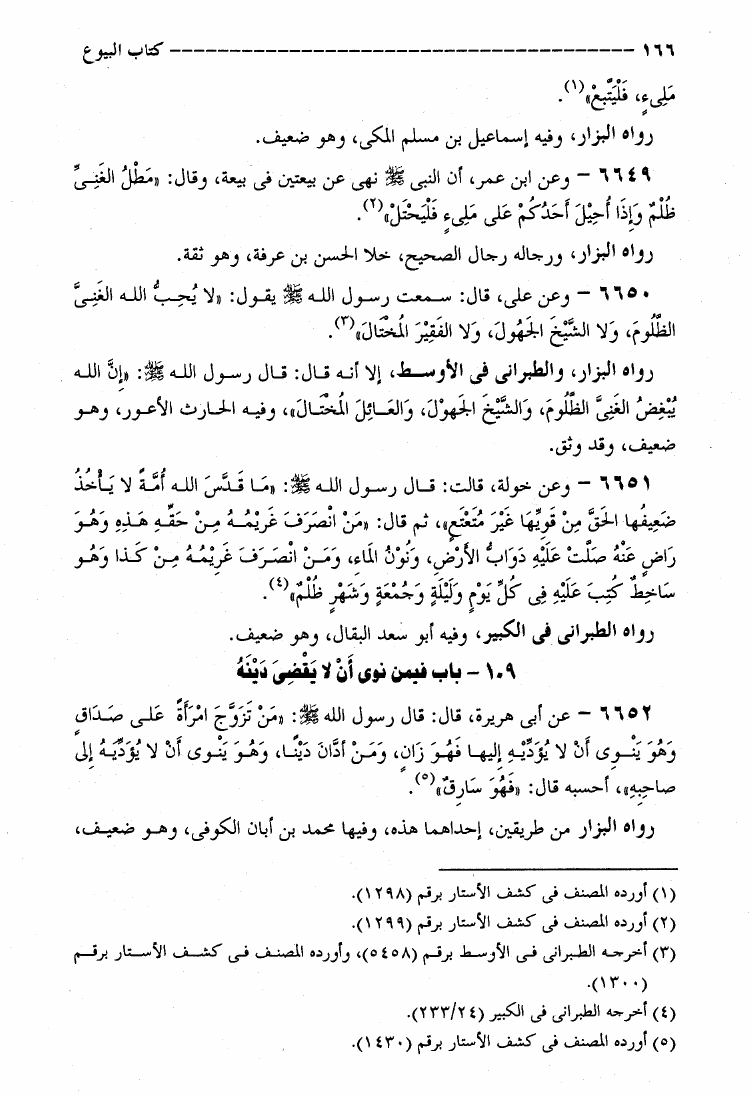 ١٦٦ ـــــــــــــــــــــــــــــــــــــــــــــــــــــــــــــــــــــــــ كتاب البيوع
مَلِىءٍ، فَلْيَتَّبِعْ»(١).
رواه البزار، وفيه إسماعيل بن مسلم المكى، وهو ضعيف.
٦٦٤٩ - وعن ابن عمر، أن النبى ﷺ نهى عن بيعتين فى بيعة، وقال: «مَطْلُ الغَنِىِّ
ظُلْمٌ وَإِذَا أُحِيْلَ أَحَدُكُمْ عَلى مَلِىءٍ فَلْيَحْتَلْ»(٢).
رواه البزار، ورجاله رجال الصحيح، خلا الحسن بن عرفة، وهو ثقة.
٦٦٥٠ - وعن على، قال: سمعت رسول الله ﷺ يقول: «لا يُحِبُّ الله الغَنِىَّ
الظَّلُومَ، وَلا الشَّيْخَ الجَهُولَ، وَلا الفَقِيْرَ المُخْتَالَ»(٣).
رواه البزار، والطبرانى فى الأوسط، إلا أنه قال: قال رسول الله ﷺ: «إِنَّ الله
يُبْغِضُ الغَنِىَّ الظَّلُومَ، وَالشَّيْخَ الجَهوْلَ، وَالعَائِلَ المُخْتَالَ»، وفيه الحارث الأعور، وهو
ضعيف، وقد وثق.
٦٦٥١ - وعن خولة، قالت: قال رسول الله ﷺ: «مَا قَدَّسَ الله أُمَّةً لا يَأْخُذُ
ضَعِيفُها الحَقَّ مِنْ قَوِيِّها غَيْرَ مُتَعْتَعٍ»، ثم قال: «مَنْ انْصَرَفَ غَرِيْمُهُ مِنْ حَقِّهِ هَذِهِ وَهُوَ
رَاضٍ عَنْهُ صَلَّتْ عَلَيْهِ دَوَابُّ الأَرْضِ، وَنُوْنُ المَاءِ، وَمَنْ انْصَرَفَ غَرِيْمُهُ مِنْ كَذَا وَهُوَ
سَاخِطٌ كُتِبَ عَلَيْهِ فِى كُلِّ يَوْمٍ وَلَيْلَةٍ وَجُمْعَةٍ وَشَهْرٍ ظُلْمٌ»(٤).
رواه الطبرانى فى الكبير، وفيه أبو سعد البقال، وهو ضعيف.
١٠٩ - باب فيمن نوى أَنْ لا يَقْضِىَ دَيْنَهُ
٦٦٥٢ - عن أبى هريرة، قال: قال رسول الله ﷺ: «مَنْ تَزَوَّجَ امْرَأَةً عَلى صَدَاقٍ
وَهُوَ يَنْوِى أَنْ لا يُؤَدِّيْهِ إِليها فَهُوَ زَانٍ، وَمَنْ ادَّانَ دَيْنًا، وَهُوَ يَنْوِى أَنْ لا يُؤَدِّيَهُ إِلى
صاحِبِهِ»، أحسبه قال: «فَهُوَ سَارِقٌ»(٥).
رواه البزار من طريقين، إحداهما هذه، وفيها محمد بن أبان الكوفى، وهو ضعيف،
(١) أورده المصنف فى كشف الأستار برقم (١٢٩٨).
(٢) أورده المصنف فى كشف الأستار برقم (١٢٩٩).
(٣) أخرجه الطبرانى فى الأوسط برقم (٥٤٥٨)، وأورده المصنف فى كشف الأستار برقم
(١٣٠٠).
(٤) أخرجه الطبرانى فى الكبير (٢٣٣/٢٤).
(٥) أورده المصنف فى كشف الأستار برقم (١٤٣٠).